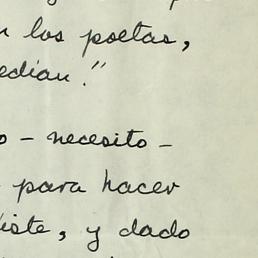 los poetas,
edian."
– necesito –
para hacer
iste, y dado